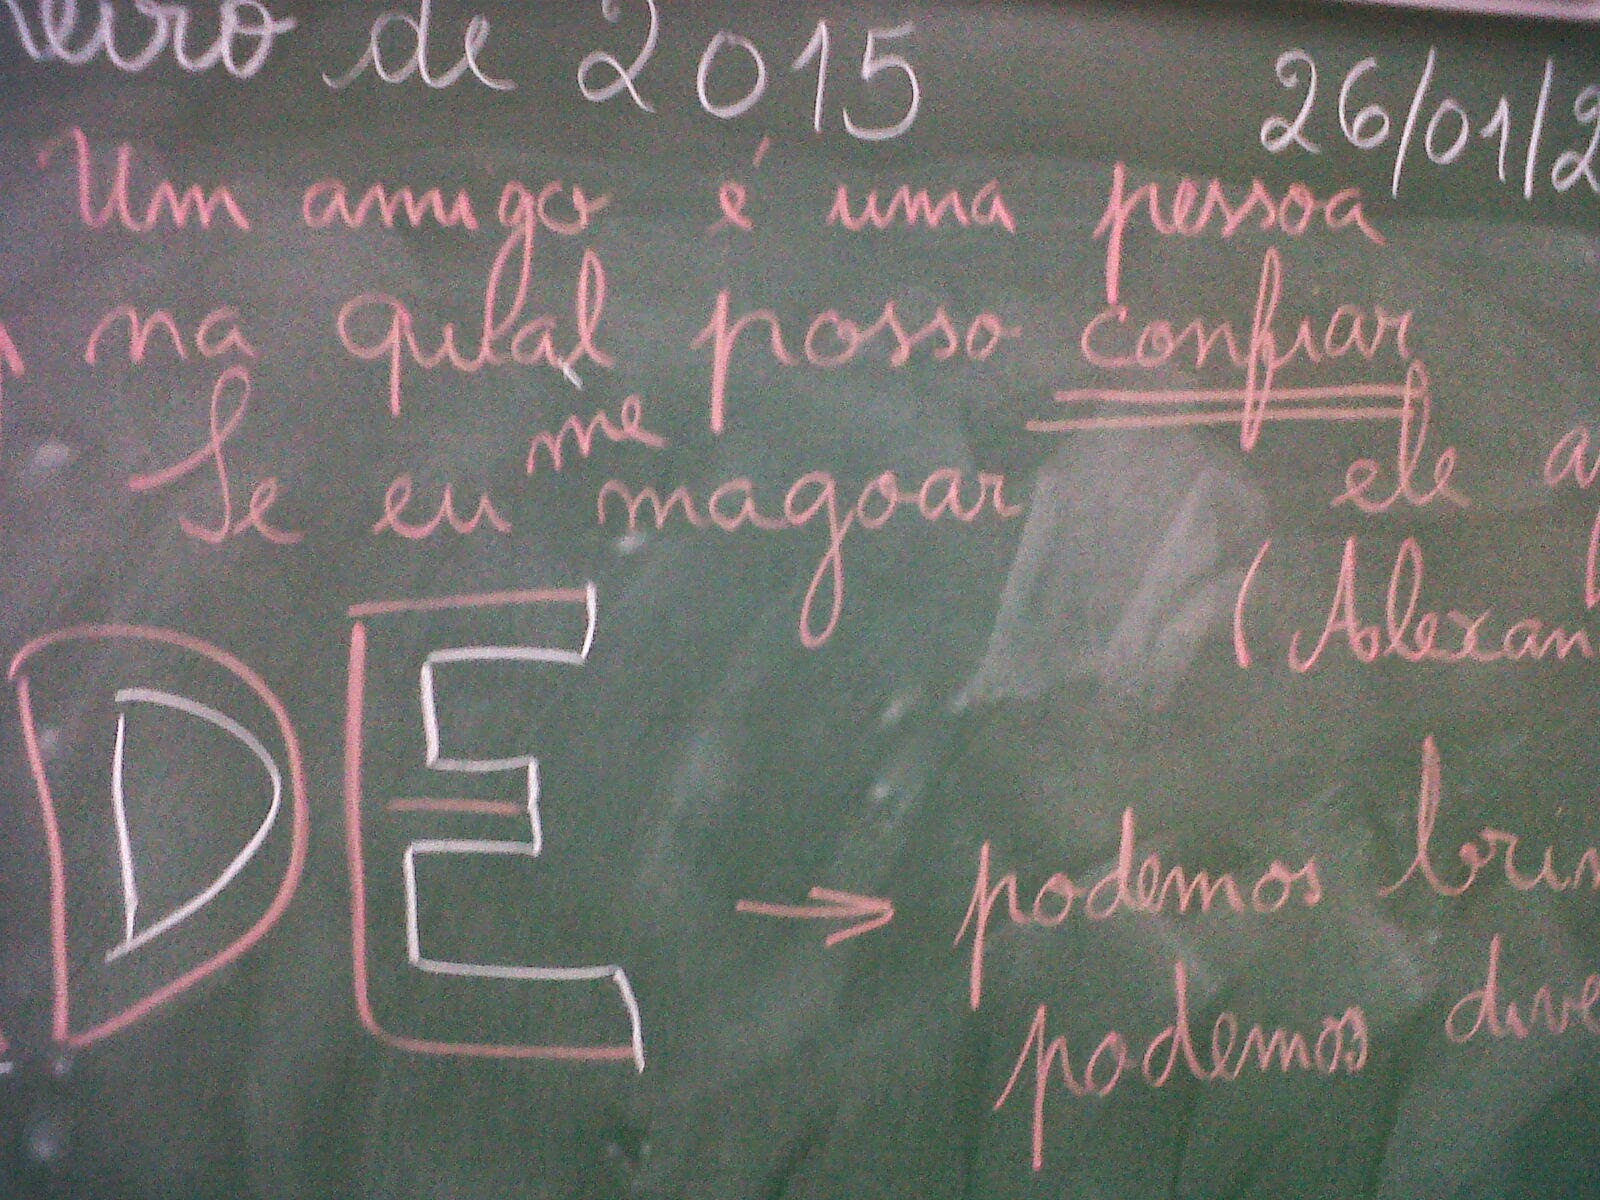 neiro de 2015 26/01/2
Um amigo é uma pessoa
na qual posso confiar
Se eu me magoar ele a
(Alexan
DE
→ podemos brin
podemos dive